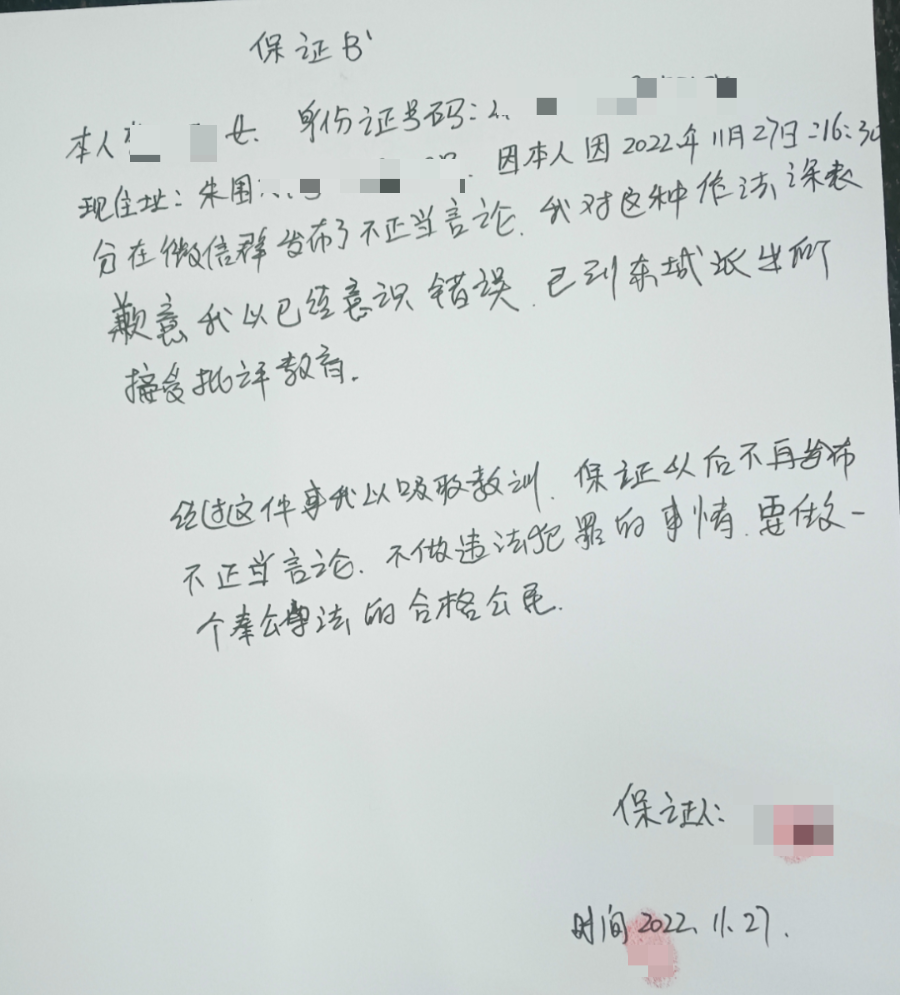 保证书
本人 女、身份证号码：
现住址：朱围 因本人因2022年11月27日16:30
分在微信群发布了不正当言论，我对这种作法深表
歉意我以已经意识错误，已到东城派出所
接受批评教育。
经过这件事我以吸取教训，保证从后不再发布
不正当言论，不做违法犯罪的事情，要做一
个奉公守法的合格公民。
保证人：
时间2022、11、27、